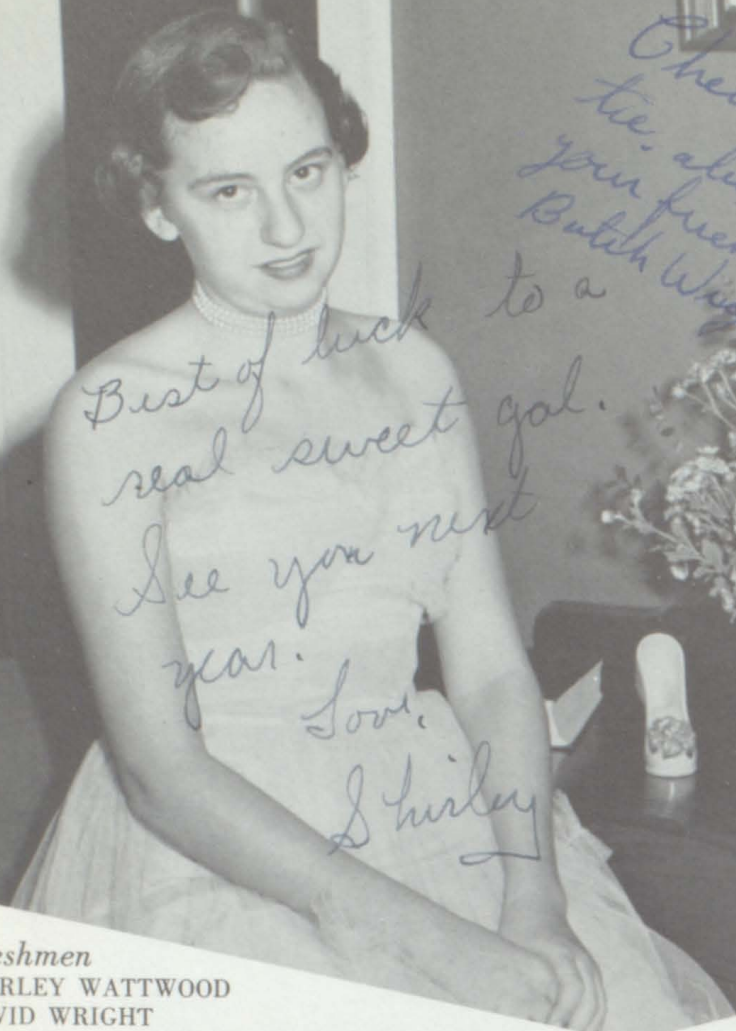 tie,
your
Butch
Best of luck to a
real sweet gal.
See you next
year.
Love,
Shirley
eshmen
RLEY WATTWOOD
VID WRIGHT